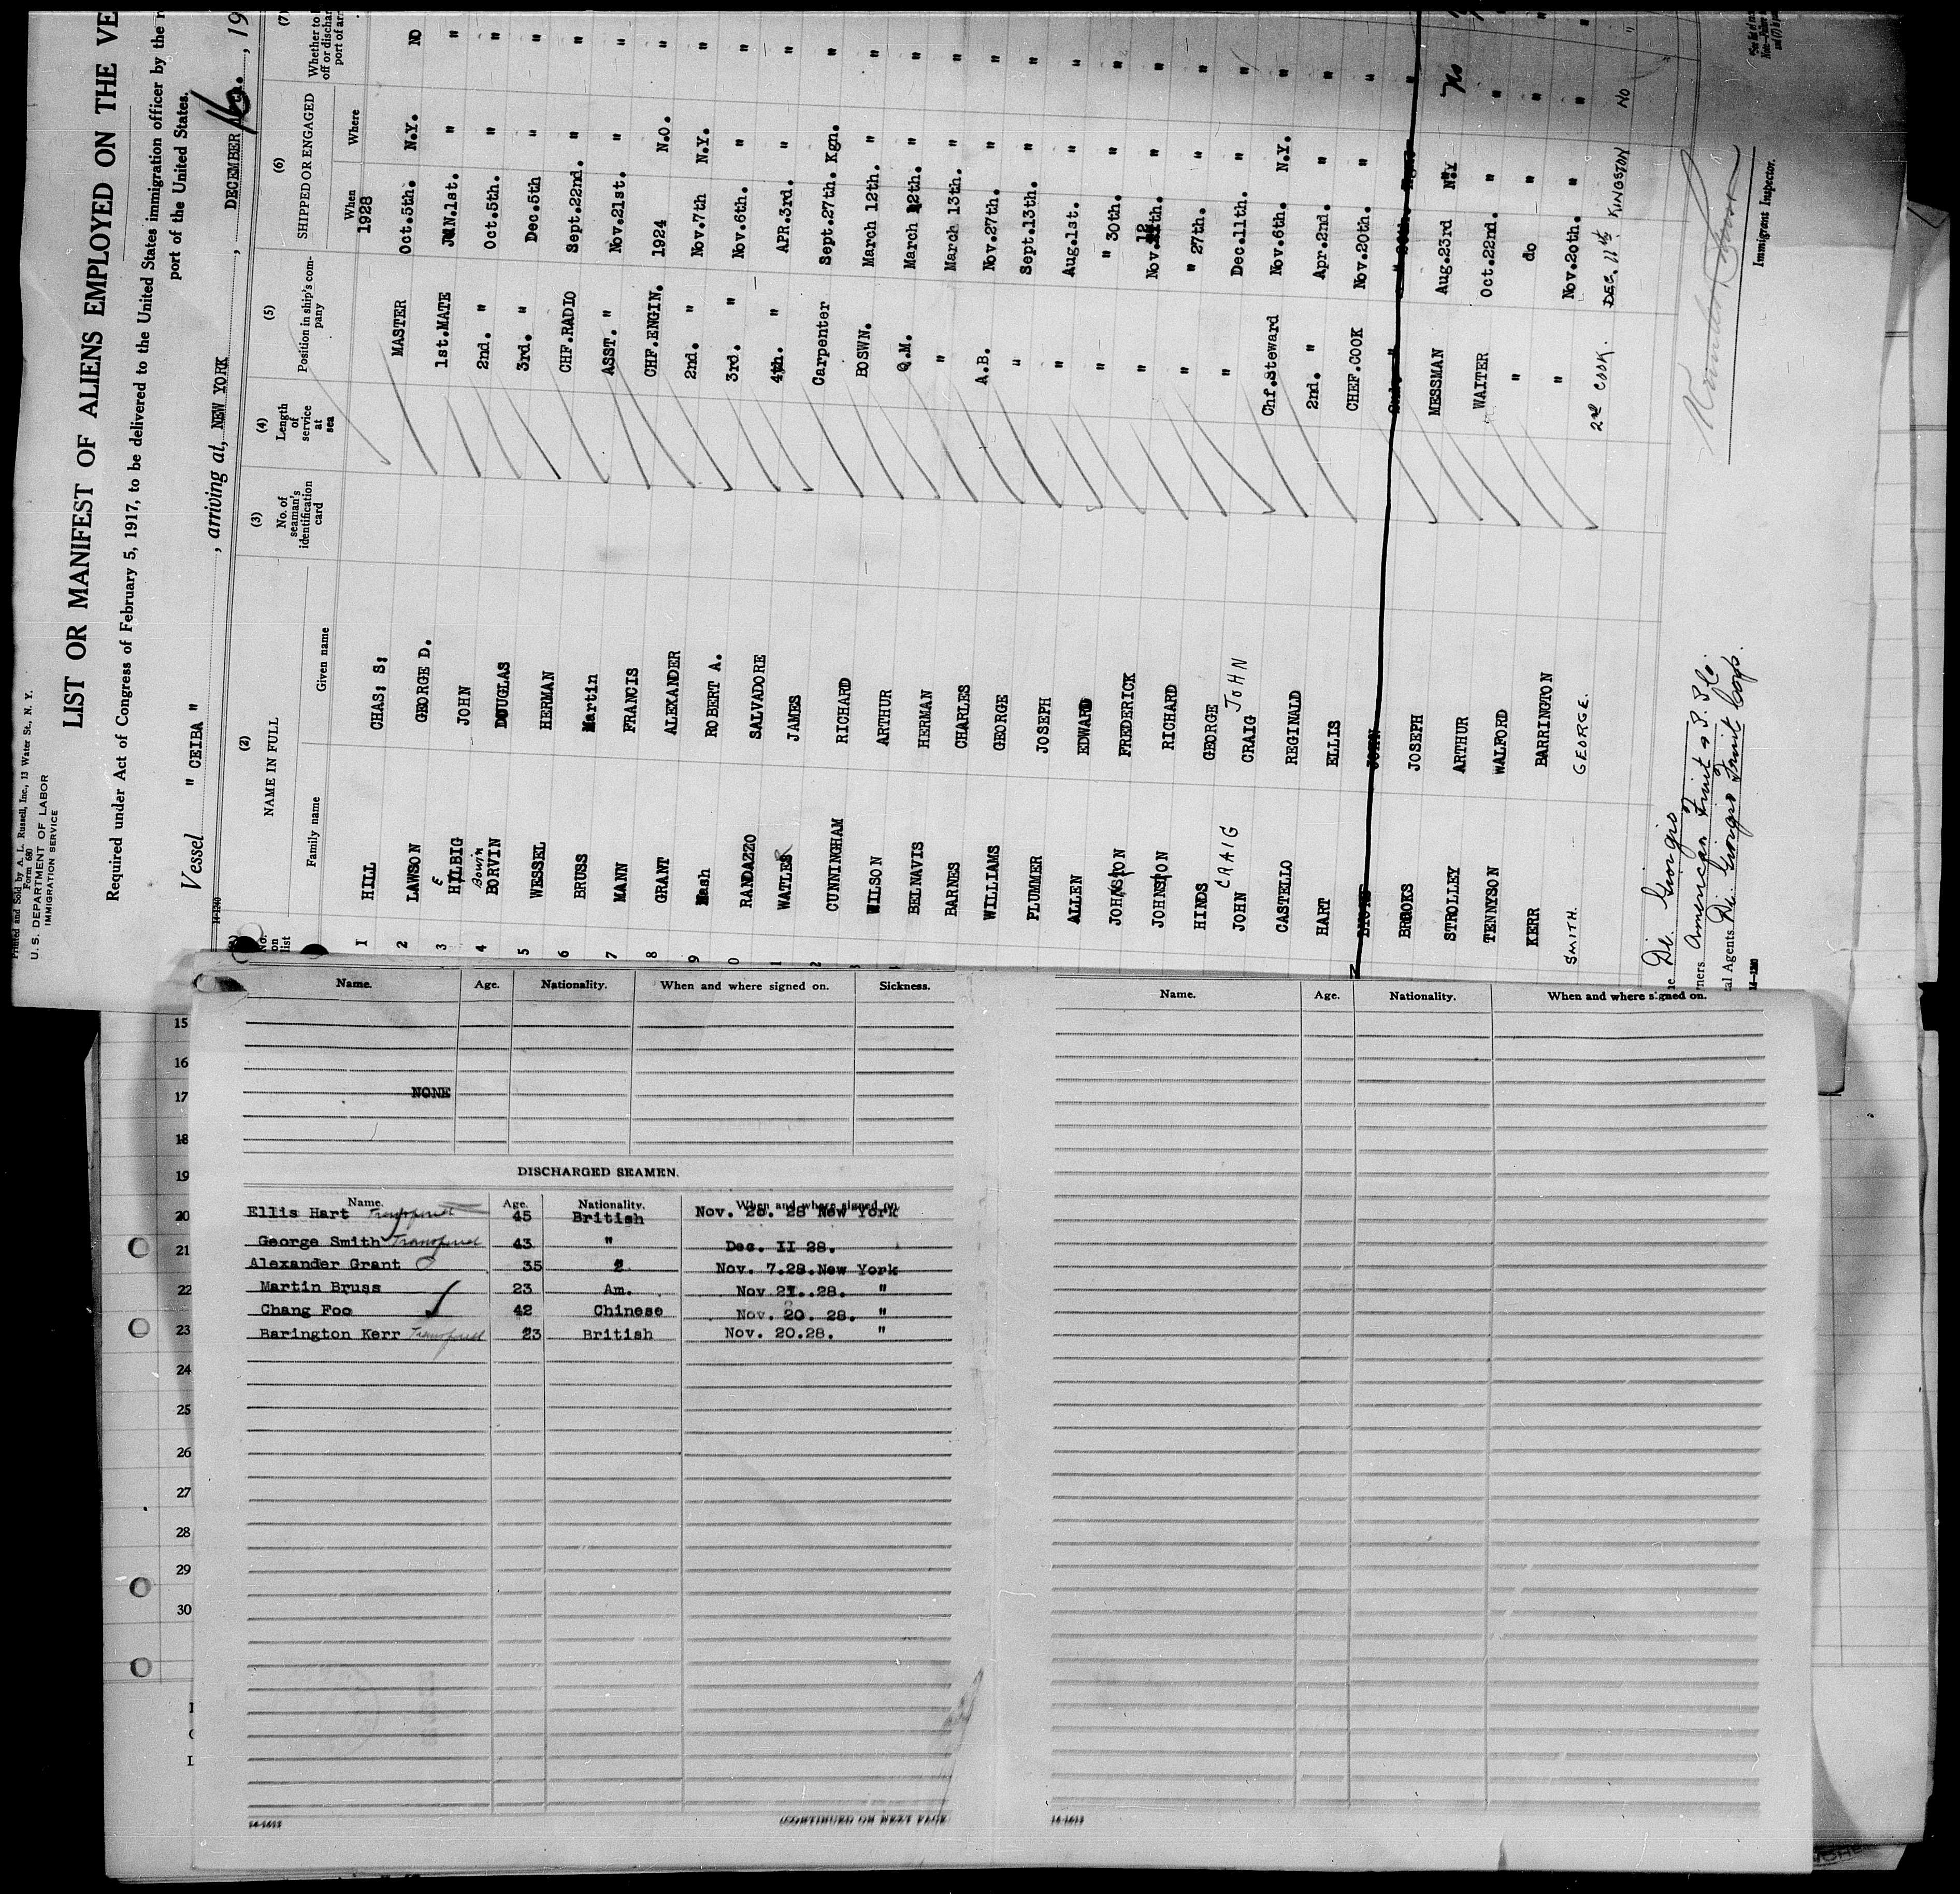 Printed and Sold by A. L. Russell, Inc., 13 Water St., N. Y.
Form 680
U. S. DEPARTMENT OF LABOR
IMMIGRATION SERVICE
LIST OR MANIFEST OF ALIENS EMPLOYED ON THE VE
Required under Act of Congress of February 5, 1917, to be delivered to the United States immigration officer by the r
port of the United States.
Vessel " CEIBA " , arriving at, NEW YORK , DECEMBER 16 , 19
14-1240
No. on list
(2) NAME IN FULL
Family name Given name
(3) No. of seaman's identification card
(4) Length of service at sea
(5) Position in ship's company
(6) SHIPPED OR ENGAGED
When Where
(7) Whether to
off or dischar
port of arr
1928
1 HILL CHAS; S; MASTER Oct.5th. N.Y. NO
2 LAWSON GEORGE D. 1st.MATE JUN.1st. " "
3 HILBIG E JOHN 2nd. " Oct.5th. " "
4 BORVIN Bowin DOUGLAS 3rd. " Dec.5th " "
5 WESSEL HERMAN CHF.RADIO Sept.22nd. " "
6 BRUSS Martin ASST. " Nov.21st. " "
7 MANN FRANCIS CHF.ENGIN. 1924 N.O. "
8 GRANT ALEXANDER 2nd. " Nov.7th N.Y. "
9 Nash ROBERT A. 3rd. " Nov.6th. " "
0 RANDAZZO SALVADORE 4th. " APR.3rd. " "
1 WATLER JAMES Carpenter Sept.27th. Kgn. "
2 CUNNINGHAM RICHARD BOSWN. March 12th. " "
WILSON ARTHUR Q.M. March 12th. " "
BELNAVIS HERMAN " March 13th. " "
BARNES CHARLES A.B. Nov.27th. " "
WILLIAMS GEORGE " Sept.13th. " "
PLUMMER JOSEPH " Aug.1st. " "
ALLEN EDWARD " " 30th. " "
JOHNSTON FREDERICK " Nov.12th. " "
JOHNSTON RICHARD " " 27th. " "
HINDS GEORGE " Dec.11th. " "
JOHN CRAIG CRAIG JOHN Chf.Steward Nov.6th. N.Y. "
CASTELLO REGINALD 2nd. " Apr.2nd. " "
HART ELLIS CHEF.COOK Nov.20th. " "
JOHN 2nd. " " 20th.
BROOKS JOSEPH MESSMAN Aug.23rd N.Y No
STROLLEY ARTHUR WAITER Oct.22nd. " "
TENNYSON WALFORD " do " "
KERR BARRINGTON " Nov.20th. " "
SMITH. GEORGE. 2nd COOK. DEC. 11th KINGSTON NO
Di Giorgio
ners American Fruit & S.S. Co.
al Agents Di Giorgio Fruit Corp.
Immigrant Inspector.
Name. Age. Nationality. When and where signed on. Sickness.
NONE
DISCHARGED SEAMEN.
Name. Age. Nationality. When and where signed on.
Ellis Hart Transferred 45 British Nov. 20. 28 New York
George Smith Transferred 43 " Dec. II 28.
Alexander Grant 35 " Nov. 7.28.New York
Martin Bruss 23 Am. Nov 21..28. "
Chang Foo 42 Chinese Nov. 20. 28. "
Barington Kerr Transferred 23 British Nov. 20.28. "
14-1613
(CONTINUED ON NEXT PAGE
Name. Age. Nationality. When and where signed on.
14-1613
15
16
17
18
19
20
21
22
23
24
25
26
27
28
29
30